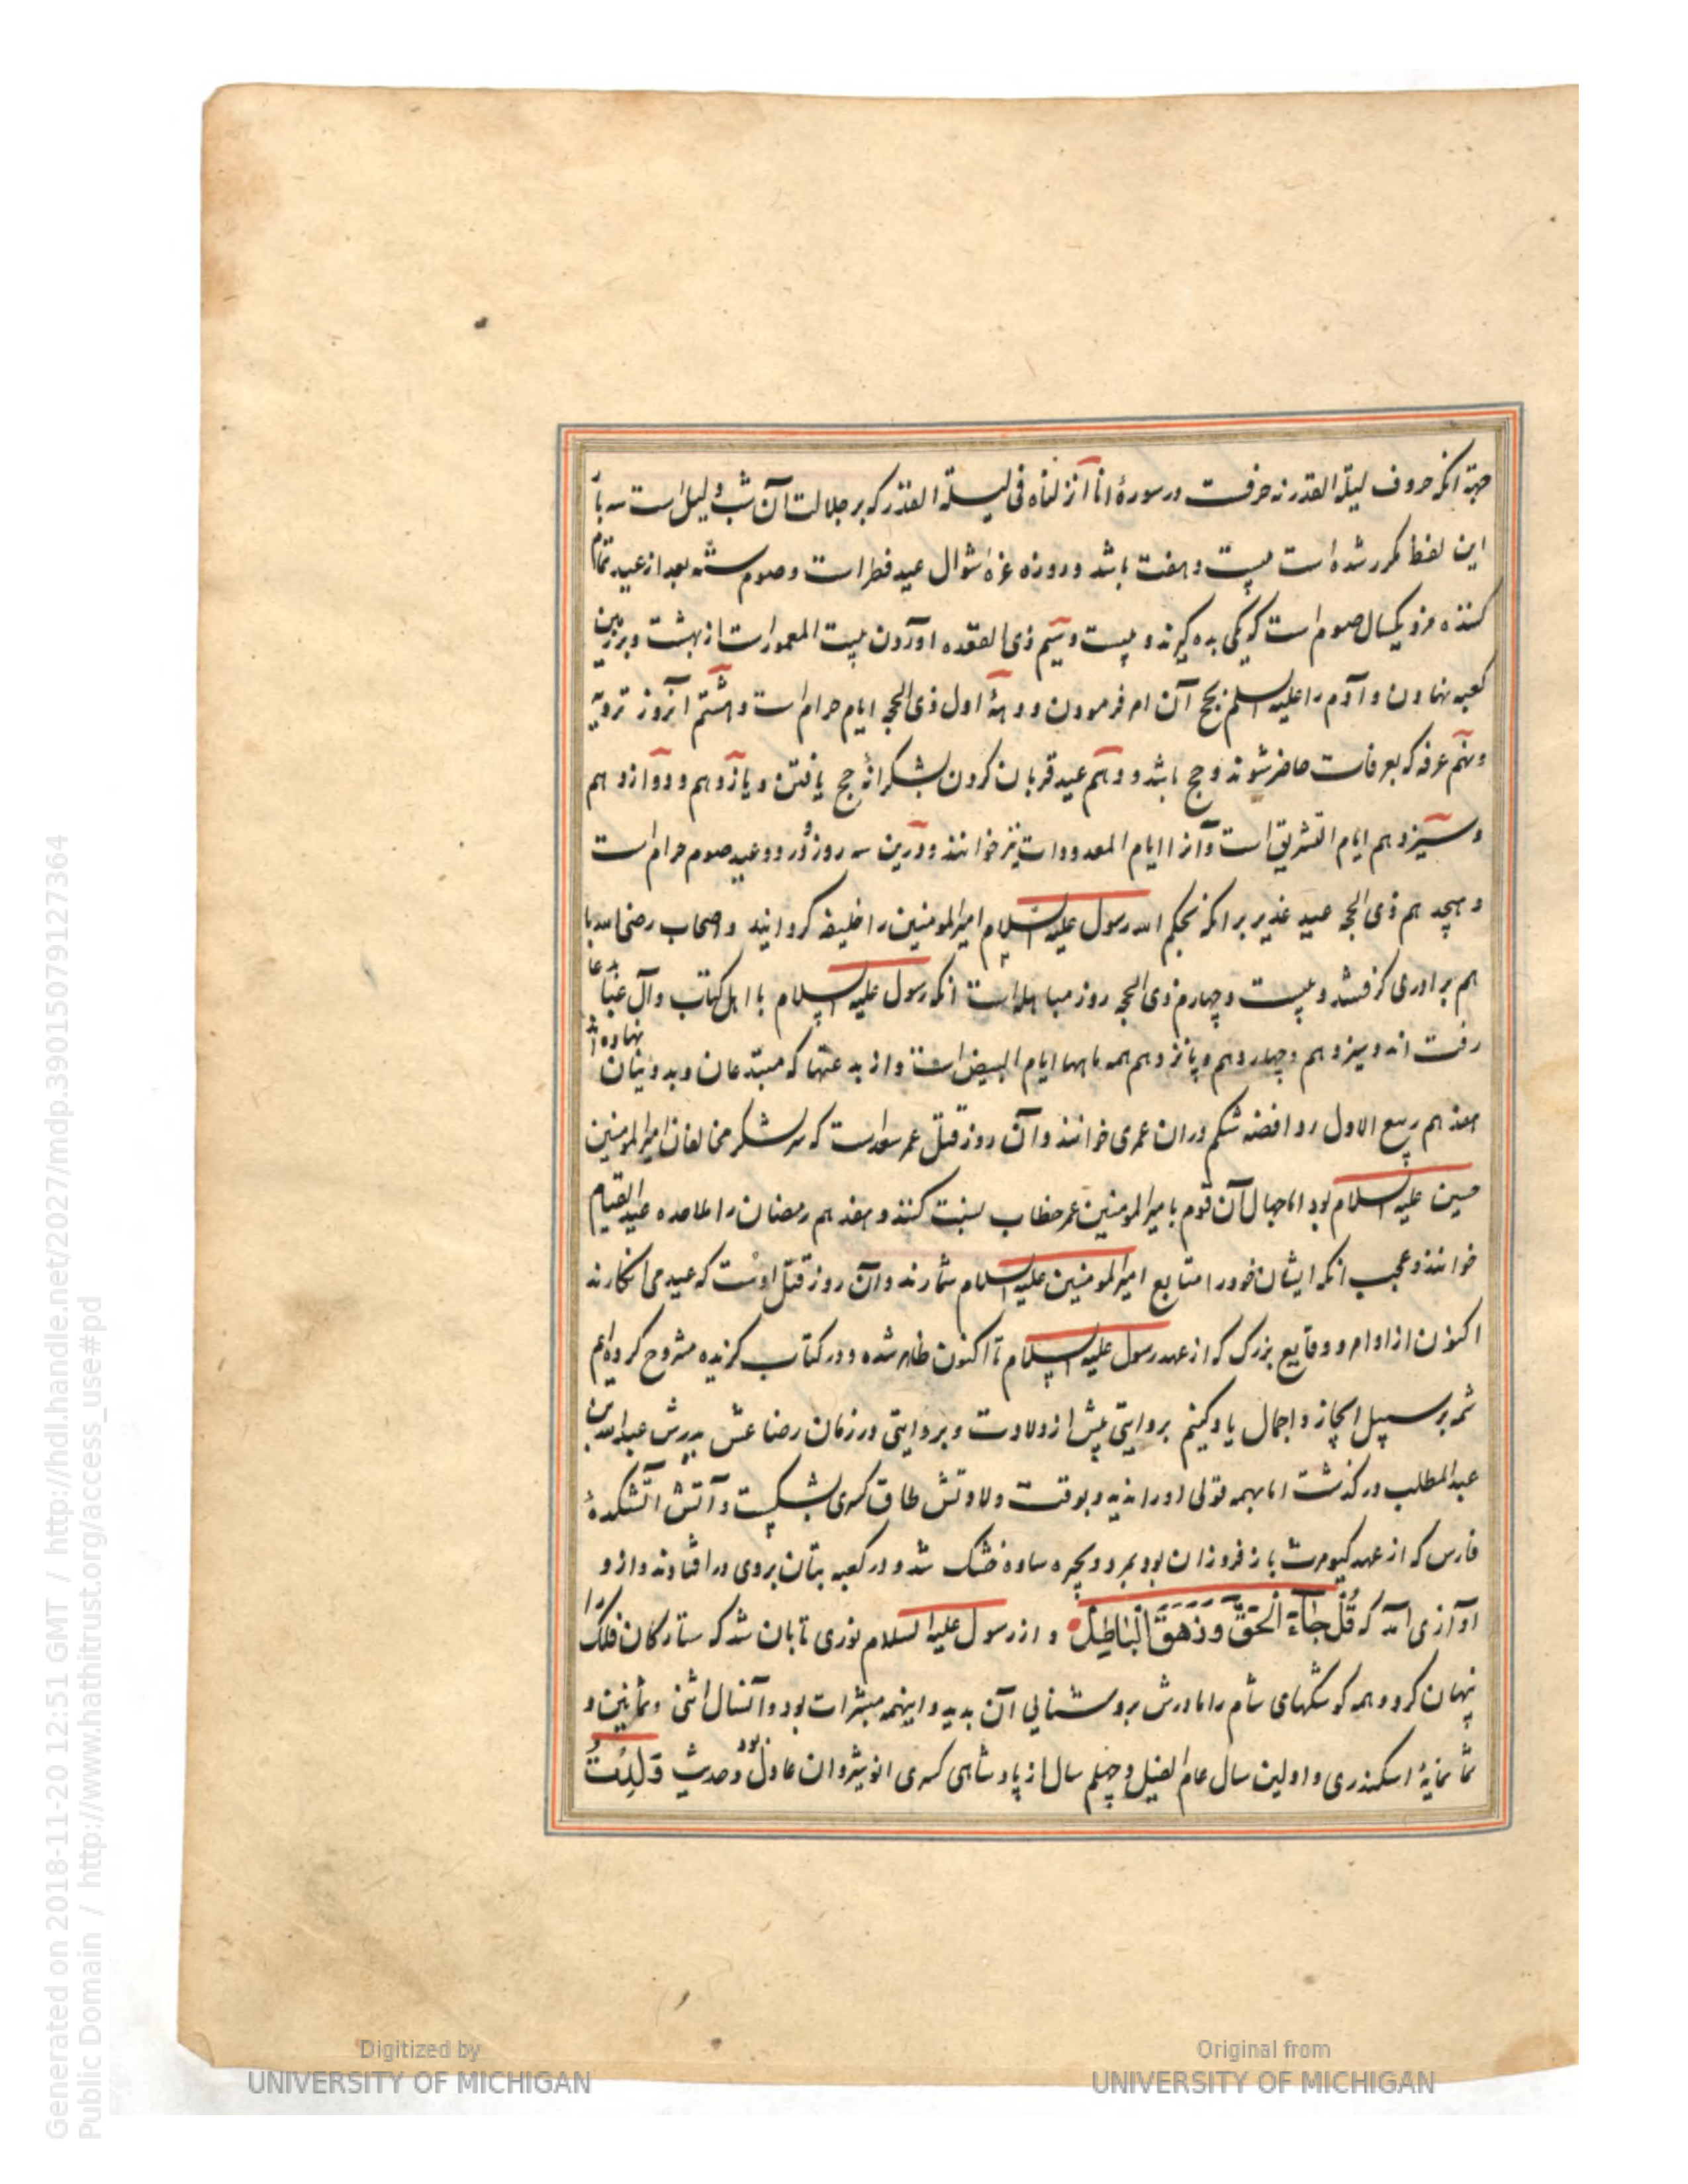 جهة آنکه حروف لیلة القدر نه حرفست در سورهٔ انا انزلناه فی لیلة القدر که بر جلالت آن شب دلیل است سه بار
این لفظ مکرر شده است بیست و هفت باشد و روزه غرهٔ شوال عید فطر است و صوم سته بعد از عید تمام
کننده مزد یکسال صوم است که یکی بده گیرند و بیست و سیم ذی القعده آوردن بیت المعمور است از بهشت و بر زمین
کعبه نهادن و آدم را علیه السلم بحج آن امر فرمودن و دههٔ اول ذی الحجه ایام حرام است و هشتم آنروز ترویه
و نهم عرفه که بعرفات حاضر شوند و حج باشد و دهم عید قربان کردن بشکرانهٔ حج یافتن و یازدهم و دوازدهم
و سیزدهم ایام التشریق است و آنرا ایام المعدودات نیز خوانند و درین سه روز و در دو عید صوم حرام است
و هیجدهم ذی الحجه عید غدیر بر آنکه بحکم الله رسول علیه السلام امیر المومنین را خلیفه گردانید و اصحاب رضی الله با
هم برادری گرفتند و بیست و چهارم ذی الحجه روز مباهله است آنکه رسول علیه السلام با اهل کتاب و آل عبا بدعا
رفت اند و سیزدهم و چهاردهم و پانزدهم همه ماهها ایام البیض است و از بدعتها که مبتدعان و بددینان نهاده اند
هفدهم ربیع الاول روافضه شکم دران عمری خوانند و آن روز قتل عمر سعد است که سر لشکر مخالفان امیر المومنین
حسین علیه السلام بود اما جهال آن قوم بامیر المومنین عمر خطاب نسبت کنند و هفدهم رمضان را ملاحده عید القیام
خوانند و عجب آنکه ایشان خود را متابع امیر المومنین علیه السلام شمارند و آن روز قتل اوست که عید می انگارند
اکنون از اوامر و وقایع بزرک که از عهد رسول علیه السلام تا اکنون ظاهر شده و در کتاب گزیده مشروح کرده ایم
شمه بر سبیل ایجاز و اجمال یاد کنیم بروایتی پیش از ولادت و بروایتی در زمان رضاعش پدرش عبدالله بن
عبد المطلب درگذشت اما بهمه قولی او را ندید و بوقت ولادتش طاق کسری بشکست و آتش آتشکدهٔ
فارس که از عهد کیومرث باز فروزان بود بمرد و بحیره ساوه خشک شد و در کعبه بتان بروی در افتادند و از و
آوازی آمد که قُلْ جَآءَ الْحَقُّ وَزَهَقَ الْبَاطِلُ و از رسول علیه السلام نوری تابان شد که ستارگان فلک را
پنهان کرد و همه کوشکهای شام را مادرش بروشنایی آن بدید و اینهمه مبشرات بود و آنسال اثنی و ثمانین و
ثمانمایهٔ اسکندری و اولین سال عام الفیل و چهلم سال از پادشاهی کسری انوشیروان عادل بود و حدیث وُلِدْتُ
Generated on 2018-11-20 12:51 GMT / http://hdl.handle.net/2027/mdp.39015079127364
Public Domain / http://www.hathitrust.org/access_use#pd
Digitized by
UNIVERSITY OF MICHIGAN
Original from
UNIVERSITY OF MICHIGAN